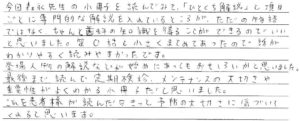 今回喜水先生の小冊子を読んでみて、「ひとくち解説」と項目
ごとに専門的な解説を入れているところが、ただの物語
ではなく、ちゃんと歯科の知識を得ることができるのでいい
と思いました。量も短く小さくまとめてあったので話が
わかりやすく読みやすかったです。
登場人物の解説なしが始めにあってもおもしろいかと思いました。
最後まで読んで定期検診、メンテナンスの大切さや
重要性がよくわかる小冊子だと思います。
これを患者様が読んだりきっと予防の大切さに気づいて
くれると思います。